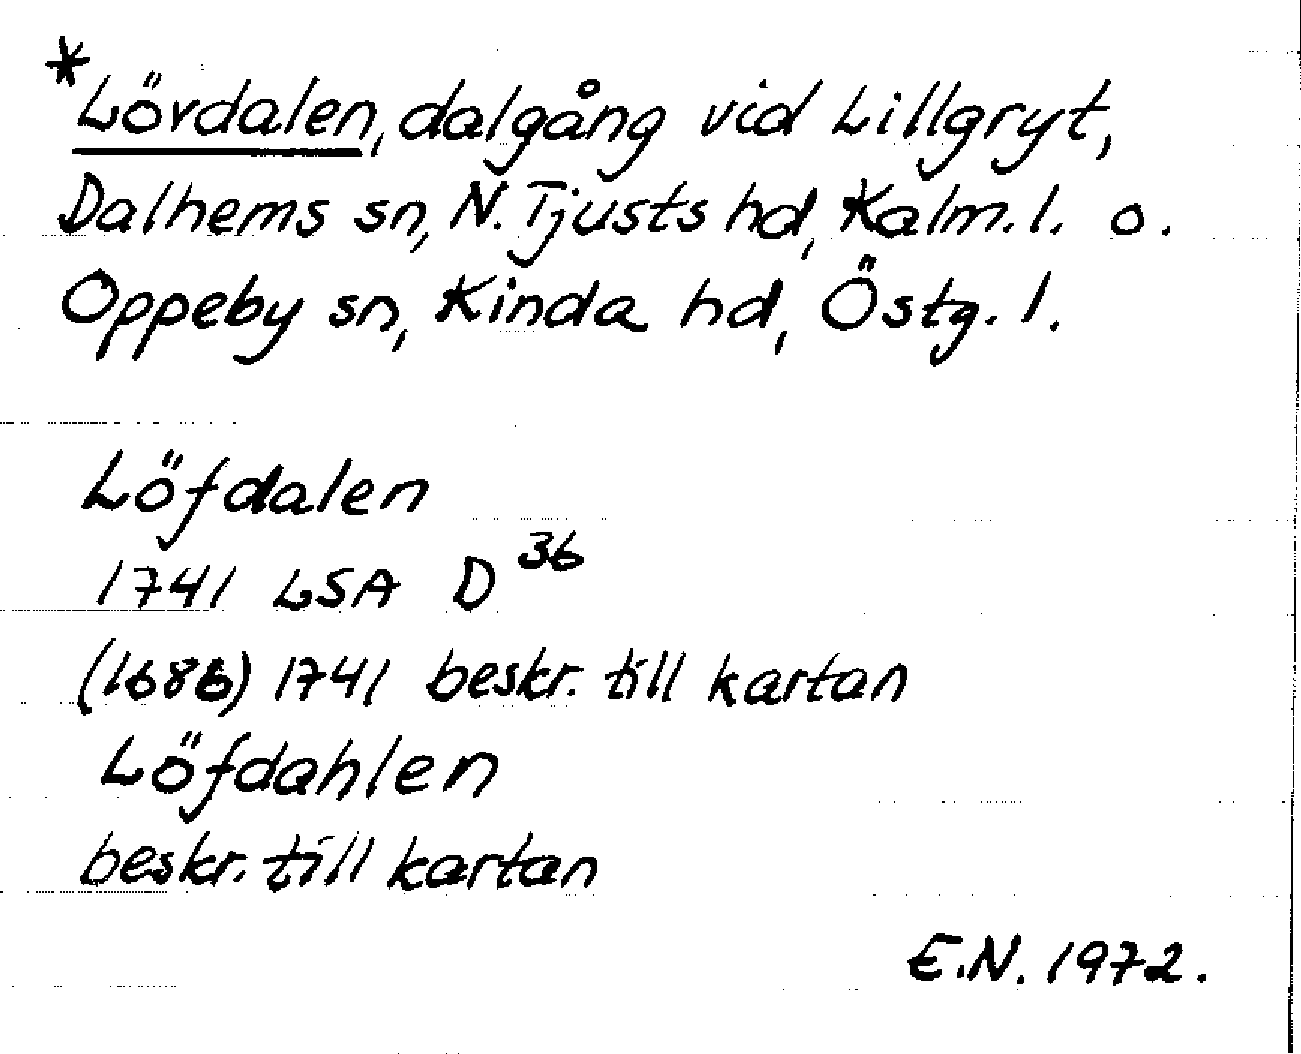 *Lövdalen, dalgång vid Lillgryt,
Dalhems sn, N. Tjusts hd, Kalm. l. o.
Oppeby sn, Kinda hd, Östg. l.
Löfdalen
1741 LSA D 36
(1686) 1741 beskr. till kartan
Löfdahlen
beskr. till kartan
E.N. 1972.